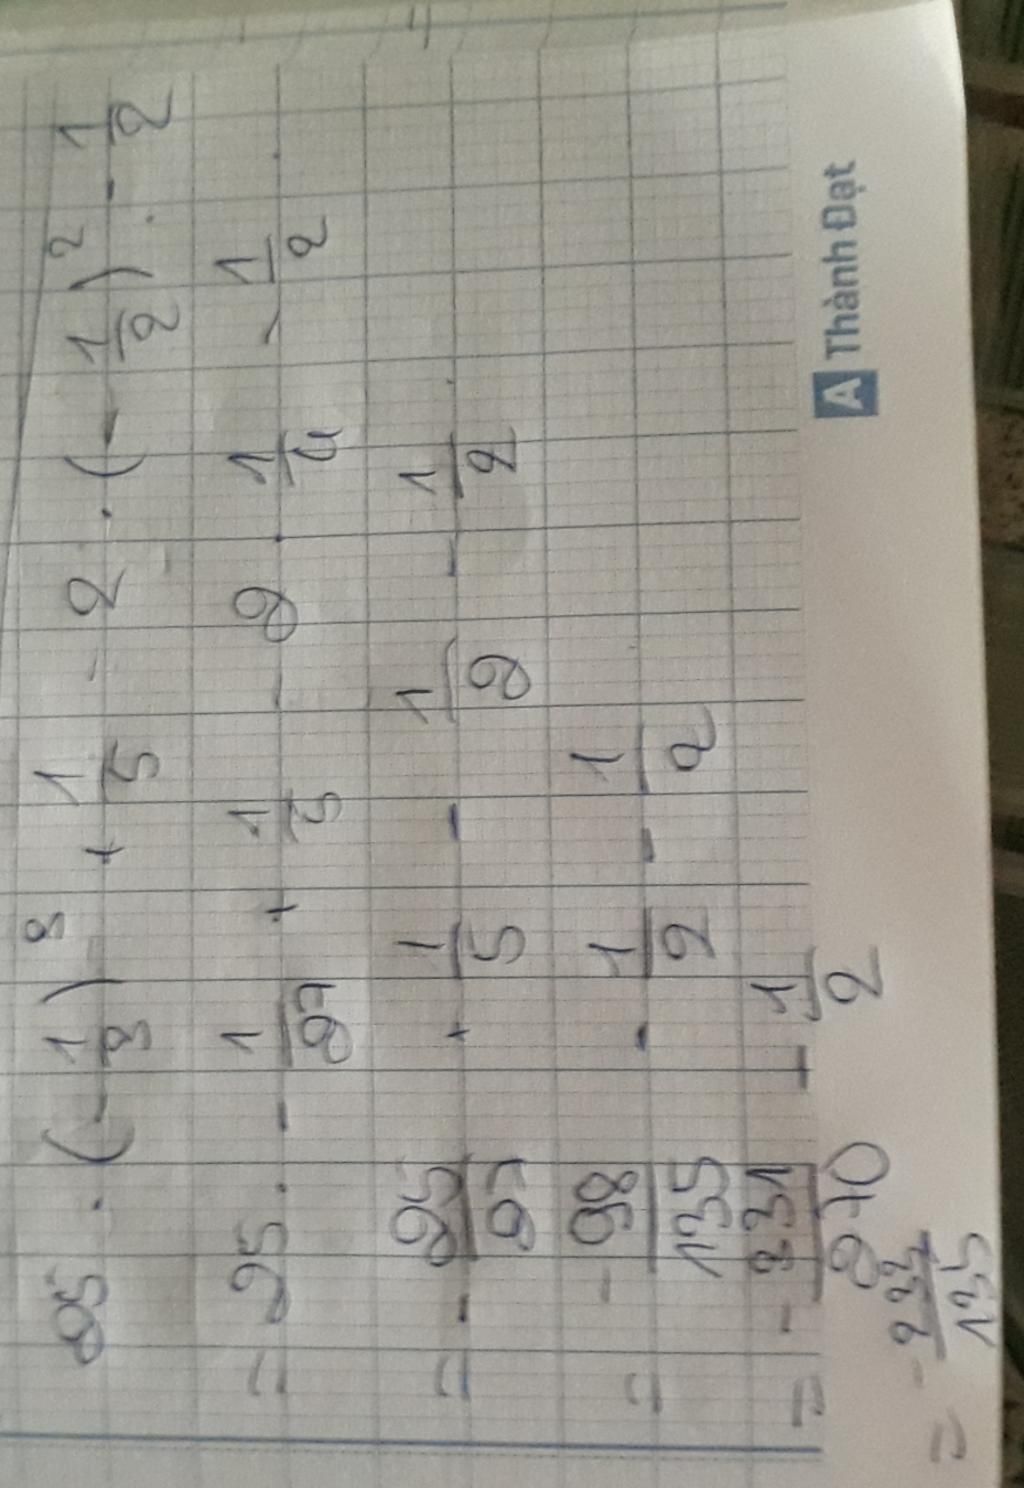 25 . (-1/3)^3 + 1/5 - 2 . (-1/2)^2 . - 1/2
= 25 . - 1/27 + 1/5 - 2 . 1/4 - 1/2
= - 25/27 + 1/5 - 1/2 - 1/2
= - 98/135 - 1/2 - 1/2
= - 331/270 - 1/2
= - 233/135
A Thành Đạt